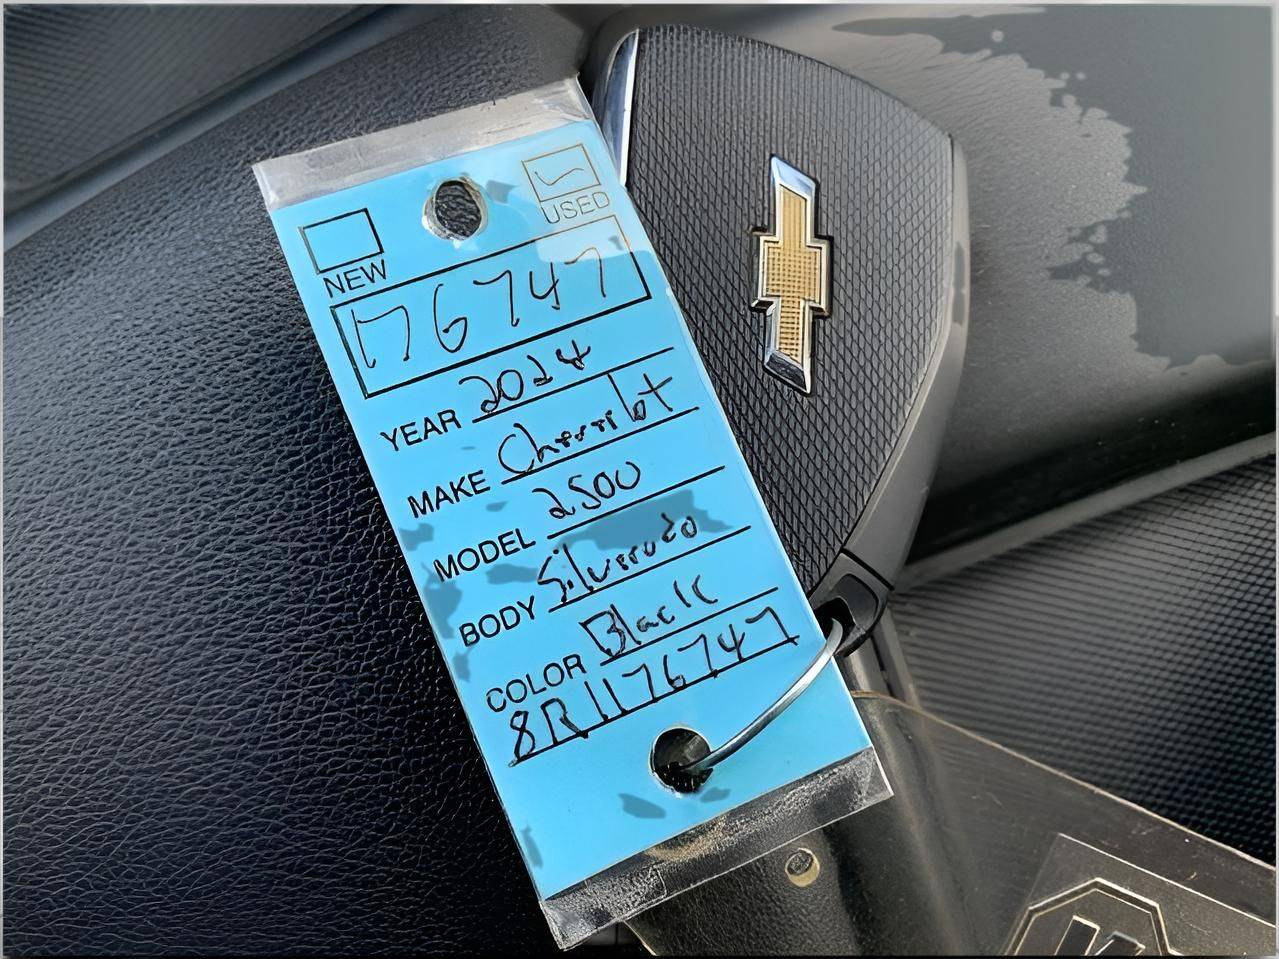 NEW USED
176747
YEAR 2024
MAKE Chevrolet
MODEL 2500
BODY Silverado
COLOR Black
8R1176747